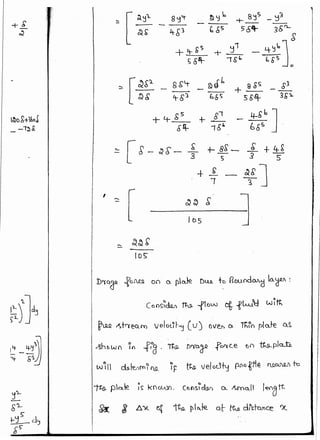 + δ/2
= [ 2y²/2δ - 8y⁴/4δ³ - 2y⁶/6δ⁵ + 8y⁵/5δ⁴ - y³/3δ²
+ 4y⁵/5δ⁴ + y⁷/7δ⁶ - 4y⁶/6δ⁵ ]
= [ 2δ²/2δ - 8δ⁴/4δ³ - 2δ⁶/6δ⁵ + 8δ⁵/5δ⁴ - δ³/3δ²
+ 4δ⁵/δ⁴ + δ⁷/7δ⁶ - 4δ⁶/6δ⁵ ]
= [ δ - 2δ - δ/3 + 8δ/5 - δ/3 + 4δ/5
+ δ/7 - 2δ/3 ]
= [ 22 δ / 105 ]
= 22δ/105
Drage force on a plate Due to Boundary layer :
Consider The flow of fluid with
free stream velocity (U) over a Thin plate as
shown in fig . The Drage force on the plate
will determine if the velocity profile nearer to
The plate is known. Consider a small length
Δx of the plate at the distance x